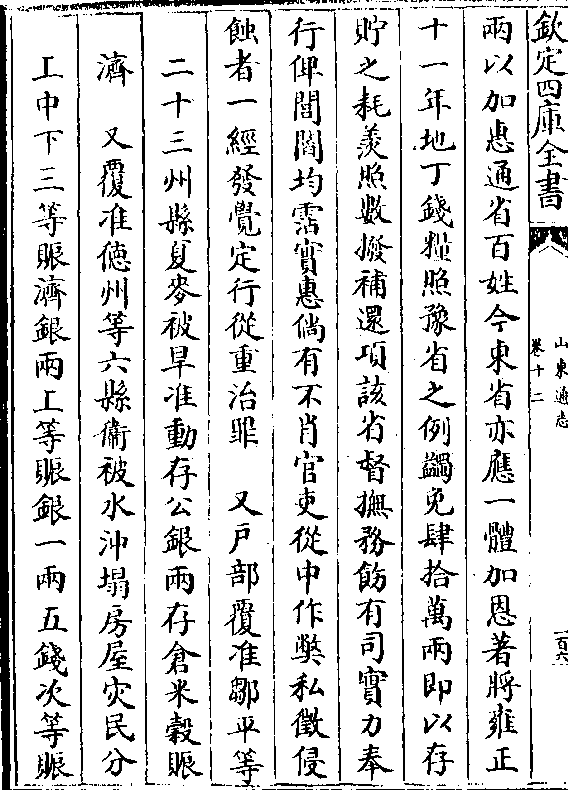 欽定四庫全書
山東通志
卷十二
一百六
兩以加惠通省百姓今東省亦應一體加恩著將雍正
十一年地丁錢糧照豫省之例蠲免肆拾萬兩即以存
貯之耗羨照數撥補還項該省督撫務飭有司實力奉
行俾閭閻均霑實惠倘有不肖官吏從中作弊私徵侵
蝕者一經發覺定行從重治罪 又戶部覆准鄒平等
二十三州縣夏麥被旱准動存公銀兩存倉米穀賑
濟 又覆准德州等六縣衞被水沖塌房屋灾民分
上中下三等賑濟銀兩上等賑銀一兩五錢次等賑